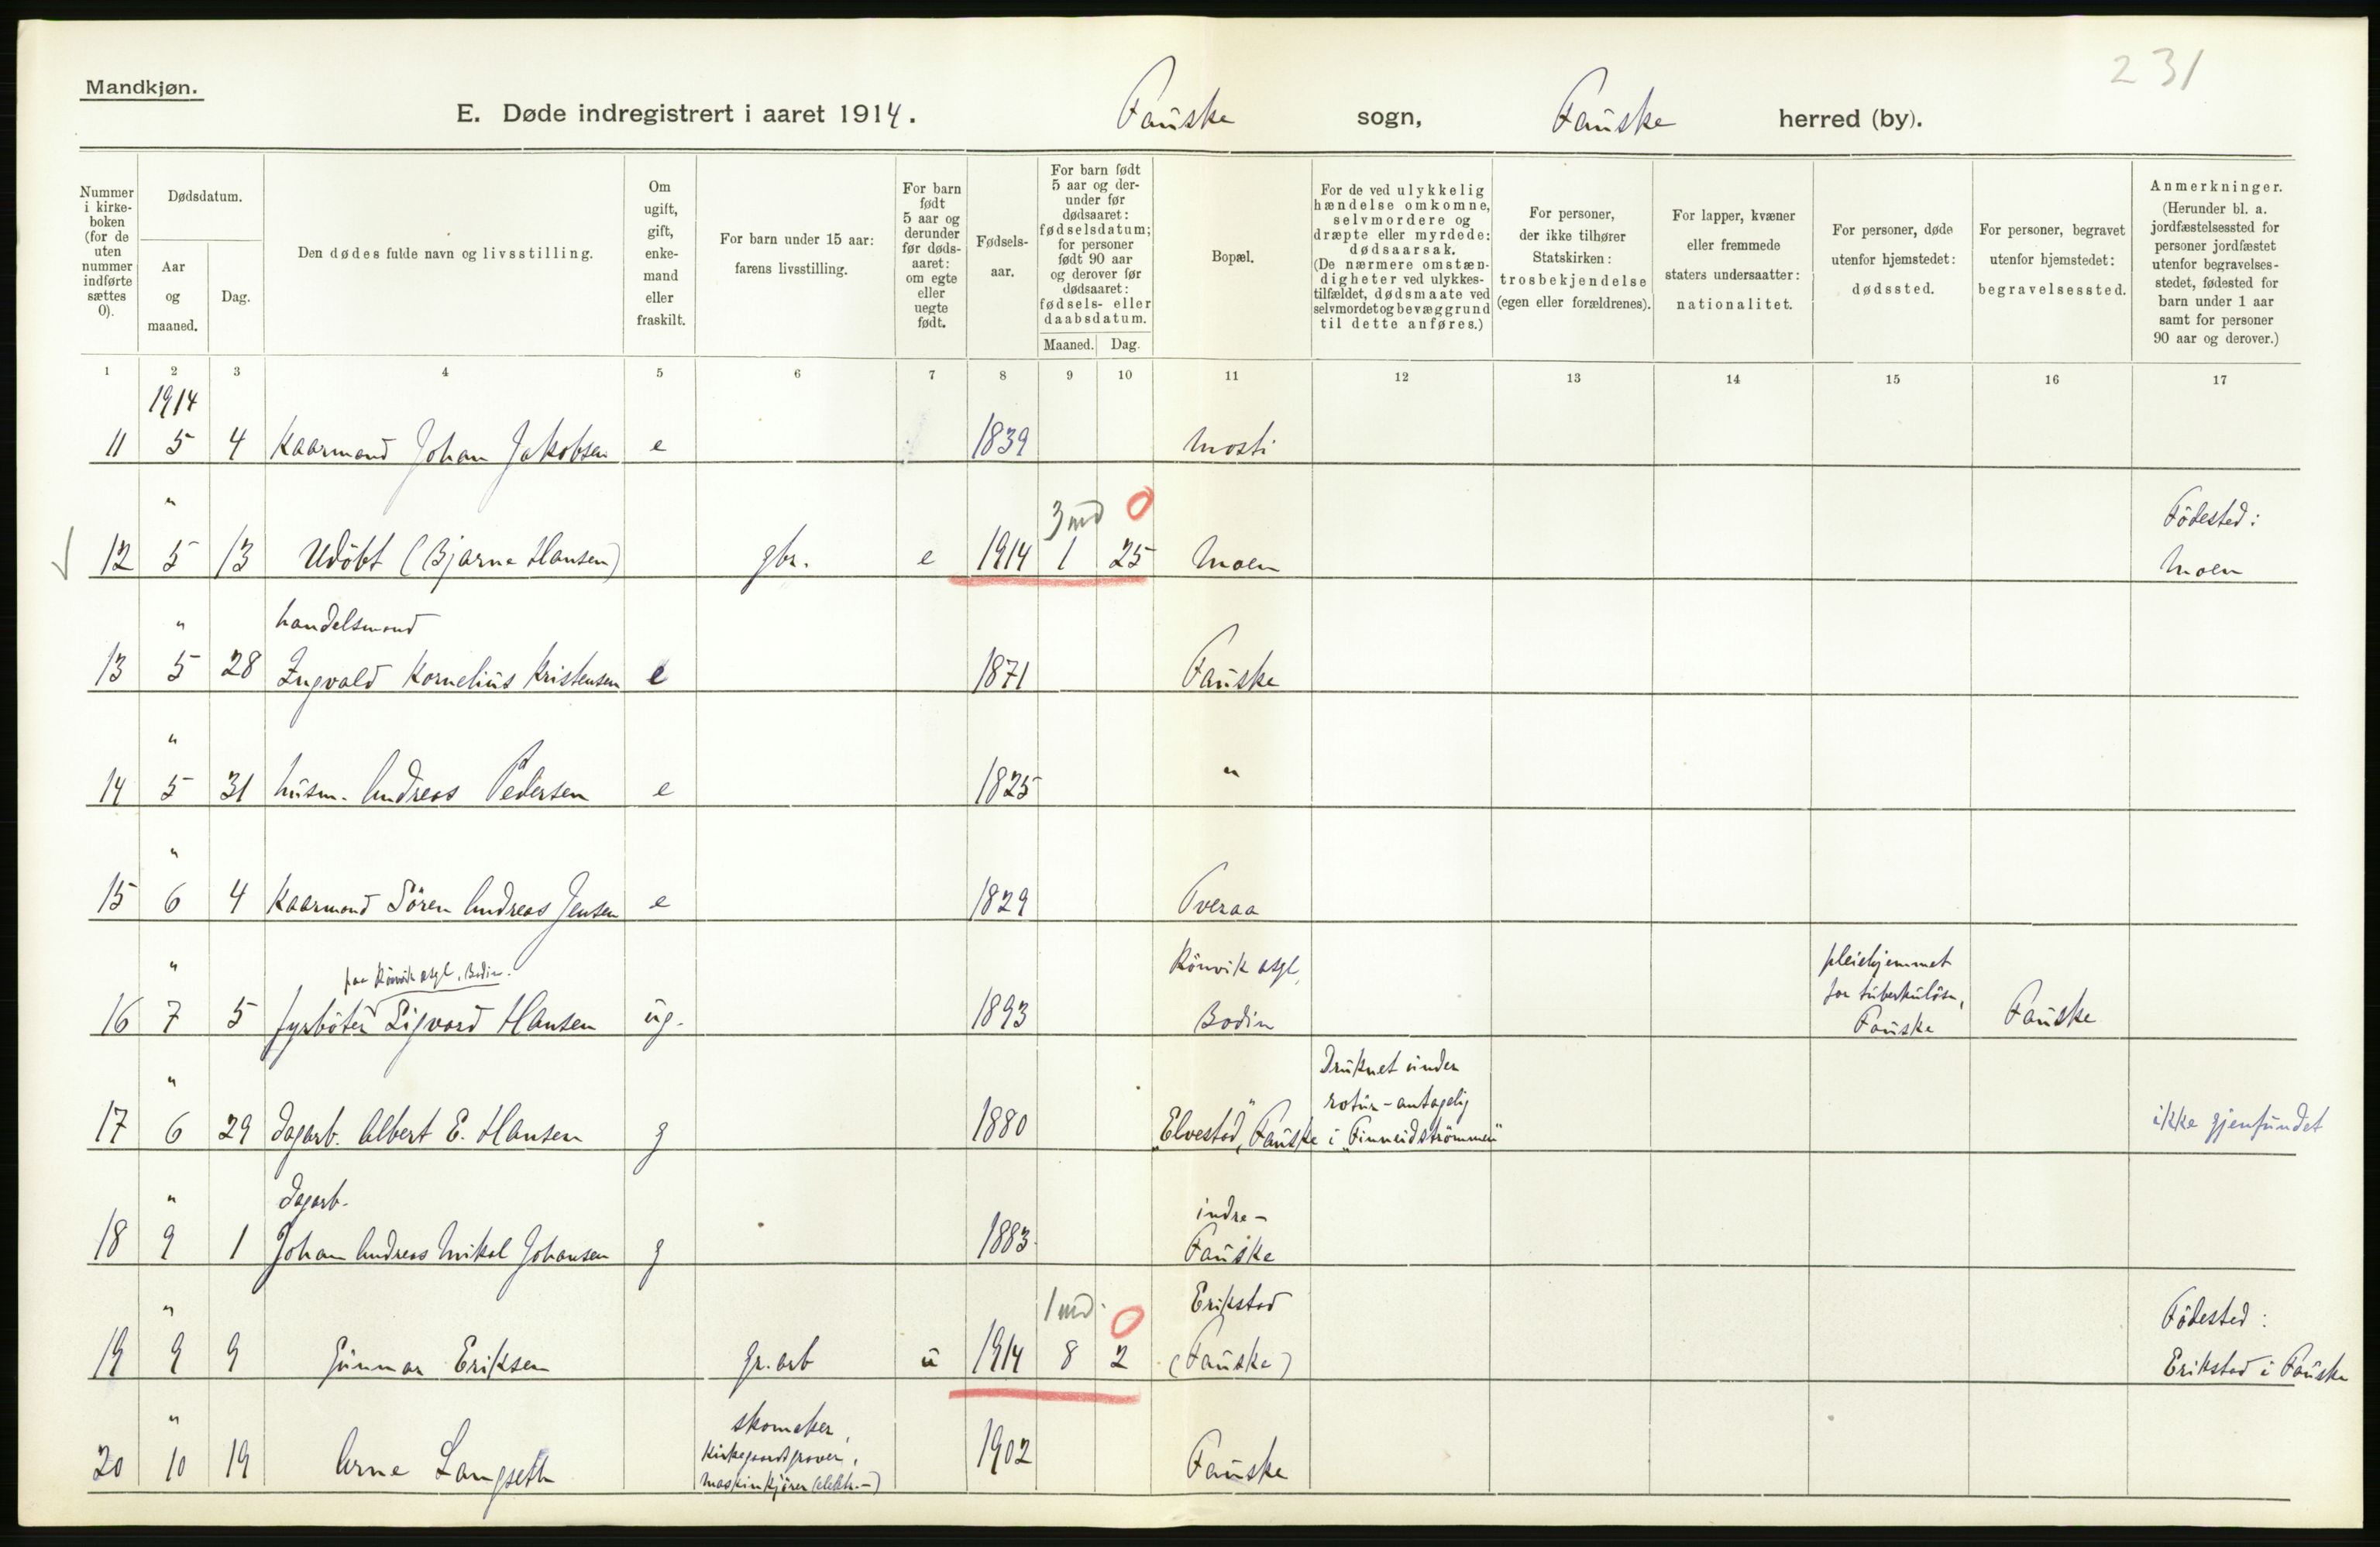 231
Mandkjøn.
E. Døde indregistrert i aaret 1914. Fauske sogn, Fauske herred (by).
Nummer i kirke- boken (for de uten nummer indførte sættes 0).
Dødsdatum.
Aar og maaned.
Dag.
Den dødes fulde navn og livsstilling.
Om ugift, gift, enke- mand eller fraskilt.
For barn under 15 aar: farens livsstilling.
For barn født 5 aar og derunder før døds- aaret: om egte eller uegte født.
Fødsels- aar.
For barn født 5 aar og der- under før dødsaaret: fødselsdatum; for personer født 90 aar og derover før dødsaaret: fødsels- eller daabsdatum.
Maaned. Dag.
Bopæl.
For de ved ulykkelig hændelse omkomne, selvmordere og dræpte eller myrdede: dødsaarsak. (De nærmere omstæn- digheter ved ulykkes- tilfældet, dødsmaate ved selvmordet og bevæggrund til dette anføres.)
For personer, der ikke tilhører Statskirken: trosbekjendelse (egen eller forældrenes).
For lapper, kvæner eller fremmede staters undersaatter: nationalitet.
For personer, døde utenfor hjemstedet: dødssted.
For personer, begravet utenfor hjemstedet: begravelsessted.
Anmerkninger. (Herunder bl. a. jordfæstelsessted for personer jordfæstet utenfor begravelses- stedet, fødested for barn under 1 aar samt for personer 90 aar og derover.)
1 2 3 4 5 6 7 8 9 10 11 12 13 14 15 16 17
1914
11 5 4 Kaarmand Johan Jakobsen e 1839 Mosti
" 3 md 0 Födested:
12 5 13 Udöbt (Bjarne Hansen) gbr. e 1914 1 25 Moen Moen
" handelsmand
13 5 28 Ingvald Kornelius Kristensen e 1871 Fauske
"
14 5 31 husm. Andreas Pedersen e 1825 "
"
15 6 4 Kaarmand Sören Andreas Jensen e 1829 Tveraa
" paa Rönvik asyl, Bodin. Rönvik asyl, pleiehjemmet for tuberkulöse,
16 7 5 fyrböter Sigvard Hansen ug. 1893 Bodin Fauske Fauske
" Druknet under rotur - antagelig
17 6 29 dagarb. Albert E. Hansen g 1880 "Elvestad", Fauske i "Finneidströmmen" ikke gjenfundet
" dagarb. indre-
18 9 1 Johan Andreas Mikal Johansen g 1883 Fauske
" 1 md. 0 Erikstad Födested:
19 9 9 Gunnar Eriksen gr. arb u 1914 8 2 (Fauske) Erikstad i Fauske
" skomaker,
kirkegaardsgraver,
20 10 19 Arne Langseth maskinkjörer (elektr.-) 1902 Fauske